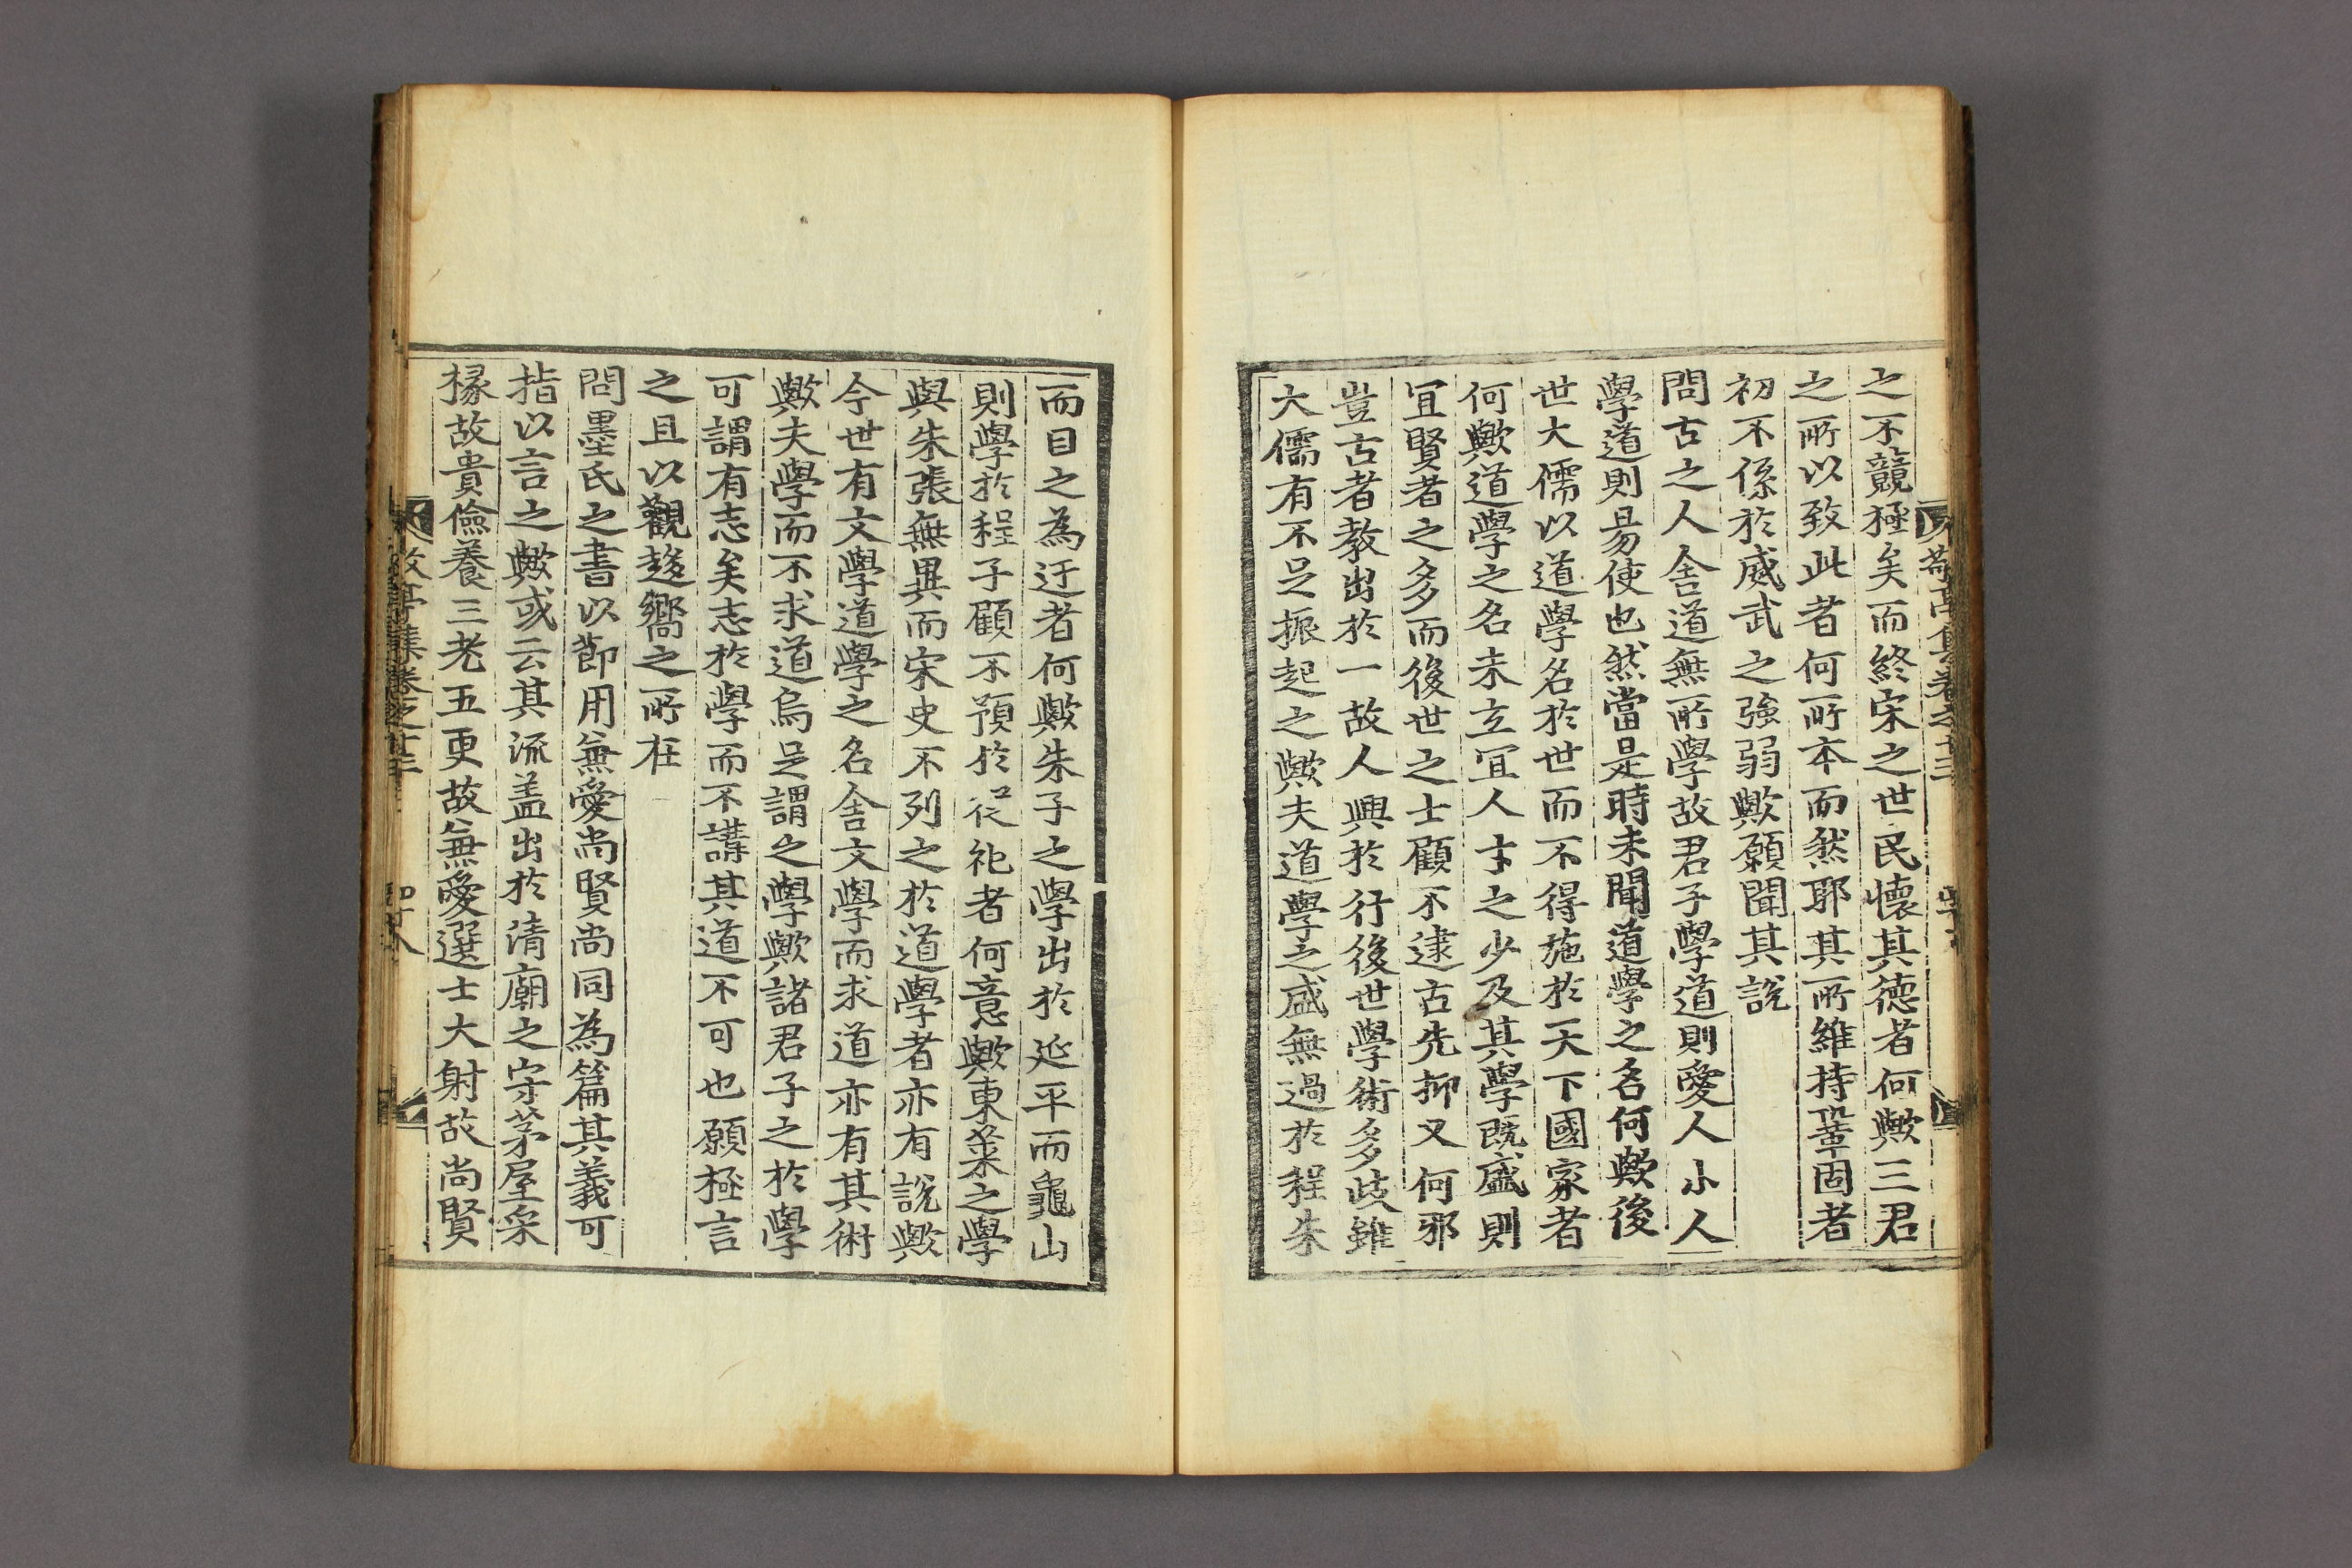 之不競極矣而終宋之世民懷其德者何歟三君
之所以致此者何所本而然耶其所維持鞏固者
初不係於威武之強弱歟願聞其說
問古之人舍道無所學故君子學道則愛人小人
學道則易使也然當是時未聞道學之名何歟後
世大儒以道學名於世而不得施於天下國家者
何歟道學之名未立冝人才之少及其學旣盛則
冝賢者之多而後世之士顧不逮古先抑又何邪
豈古者教出於一故人興於行後世學術多歧雖
大儒有不足振起之歟夫道學之盛無過於程朱
而目之為迂者何歟朱子之學出於延平而龜山
則學於程子顧不預於從祀者何意歟東萊之學
與朱張無異而宋史不列之於道學者亦有說歟
今世有文學道學之名舍文學而求道亦有其術
歟夫學而不求道烏足謂之學歟諸君子之於學
可謂有志矣志於學而不講其道不可也願極言
之且以觀趍嚮之所在
問墨氏之書以節用無愛尚賢尚同為篇其義可
指以言之歟或云其流盖出於清廟之守茅屋采
椽故貴儉養三老五更故無愛選士大射故尚賢